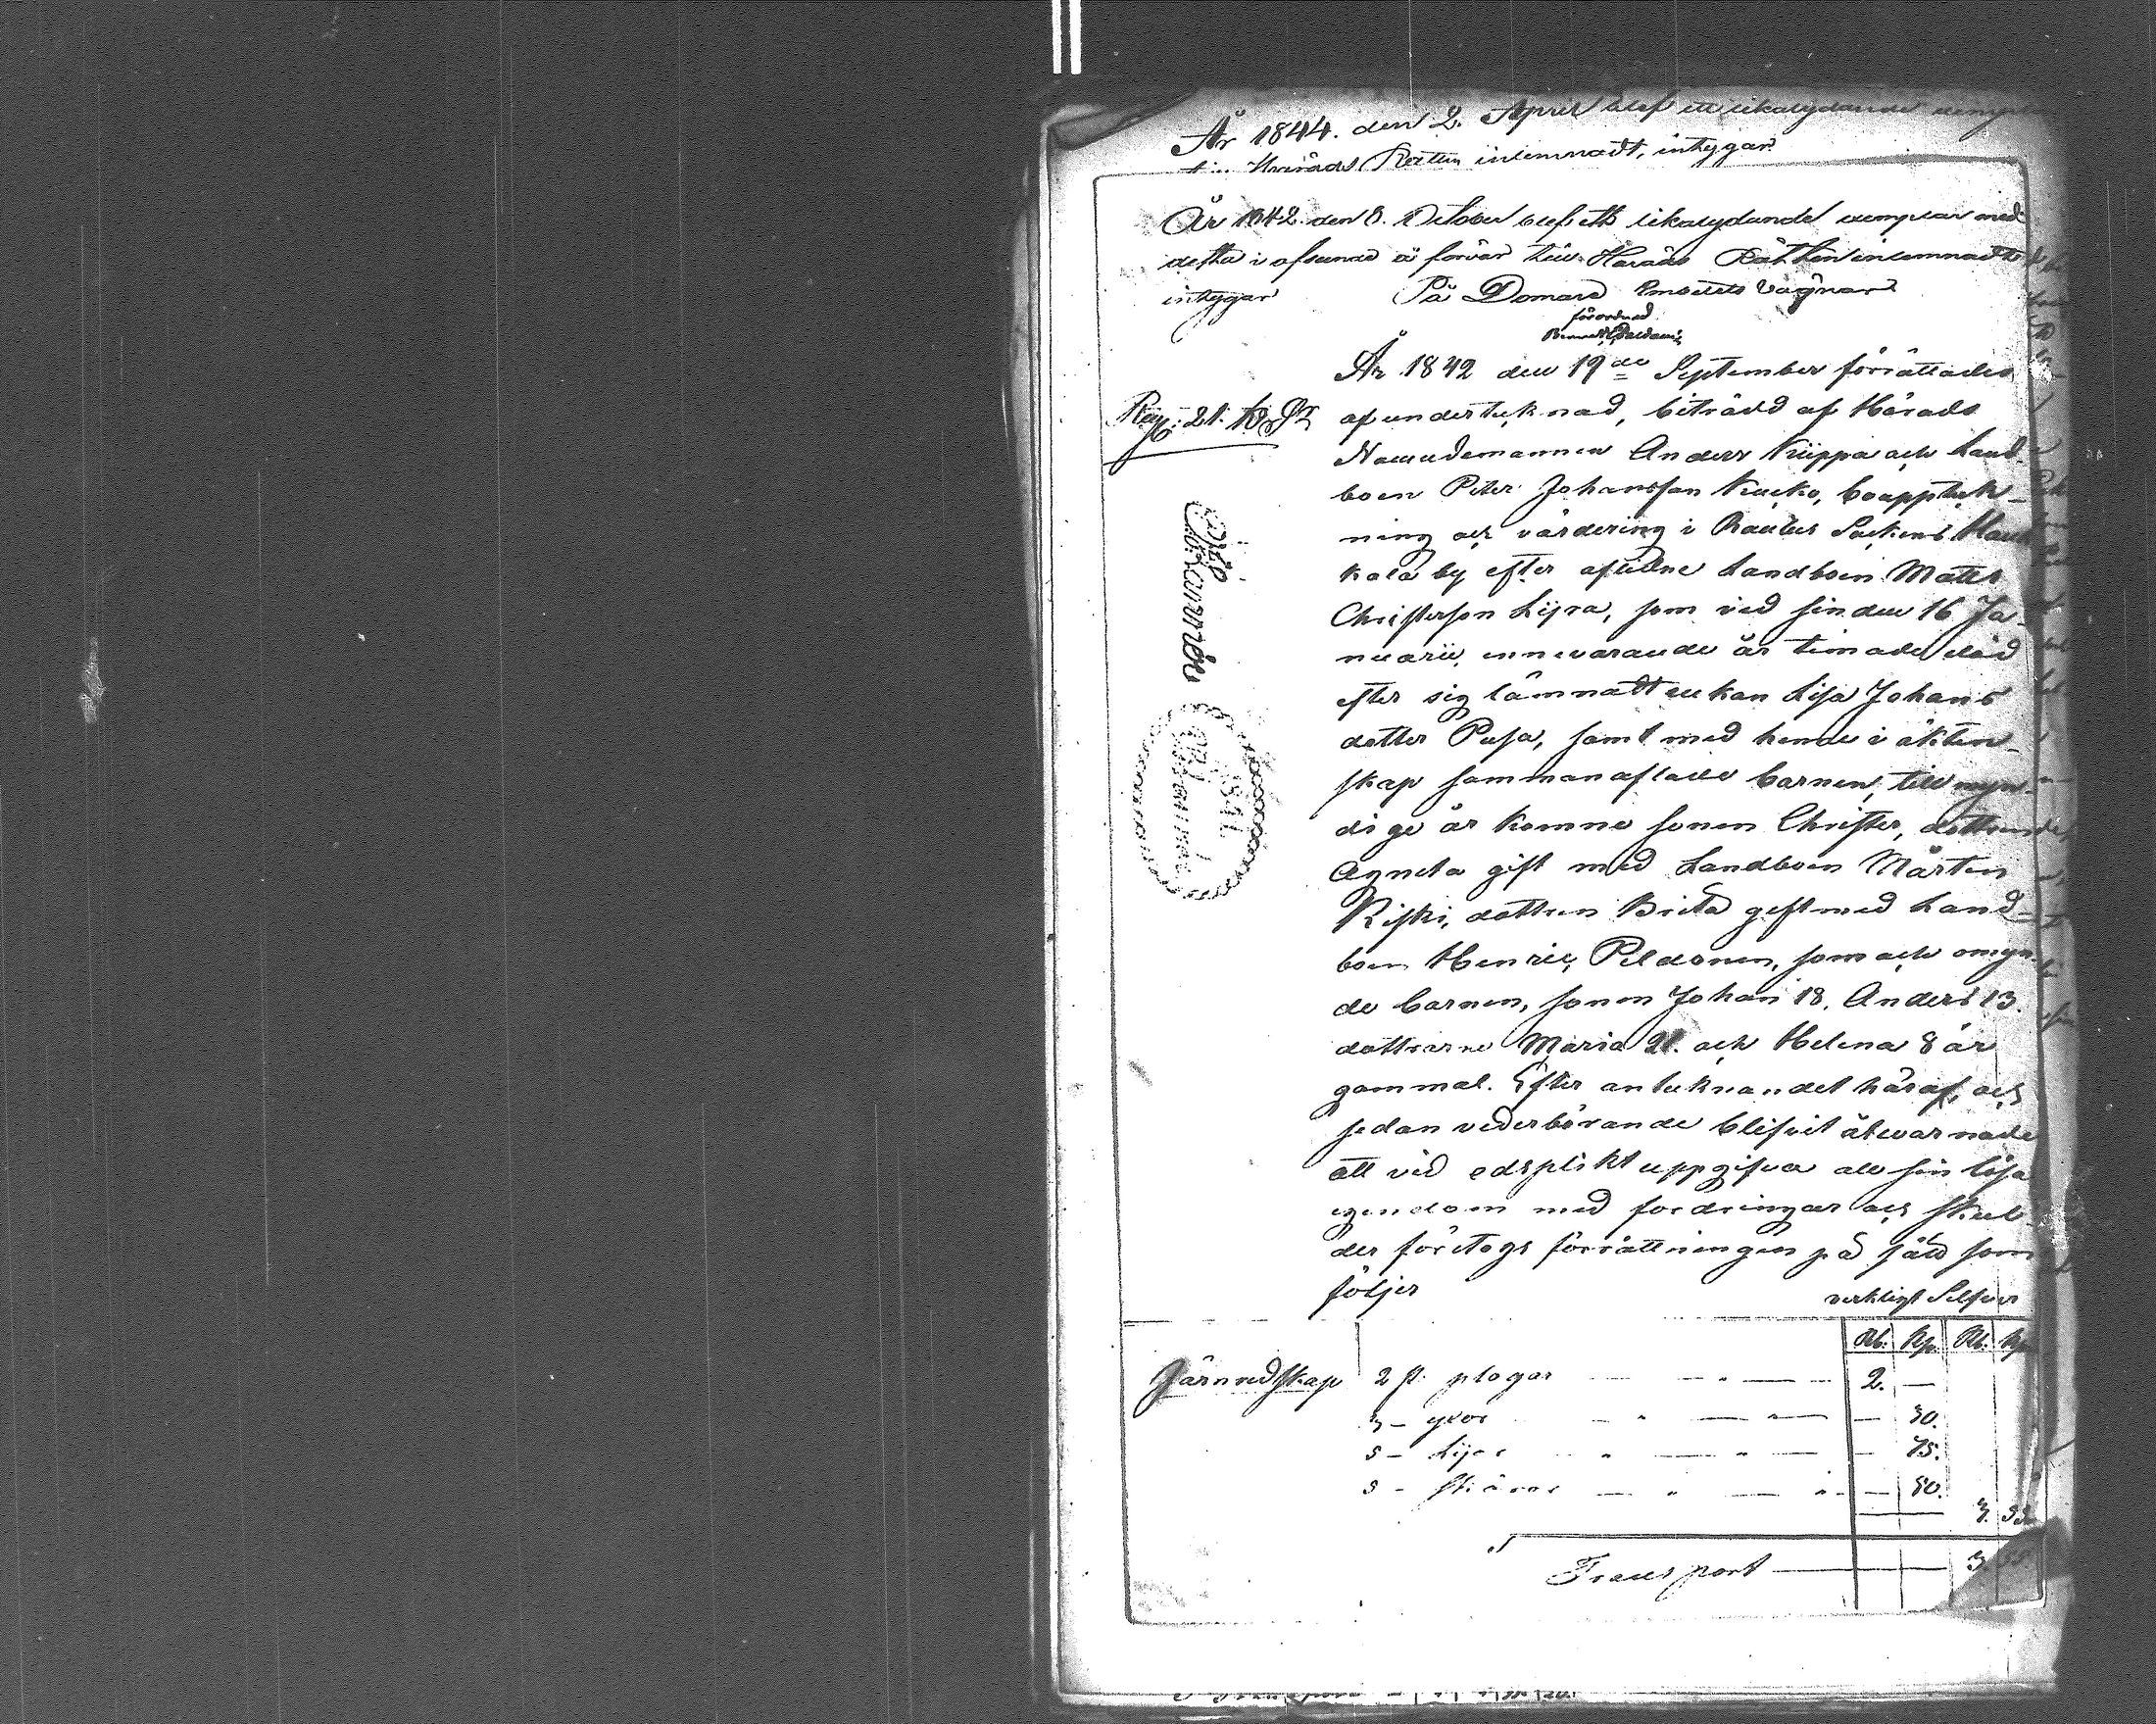 År 1844. den 2. April blef ett likalydande
Härads Rätten inlemnadt, intygar
År 1842 den 8. October blef ett likalydande exemplar med
detta i afseende å förvar till Härads Rätten inlemnadt
intygar På Domare Embetets vägnar
förordnad
År 1842 den 19de September förrättades
af undertecknad, biträdd af Härads
Nämndemannen Anders Kiippa och Land-
boen Peter Johansson Kucko, bouppteck-
ning och värdering i Rautus Sockens Hau
kala by efter aflidne Landboen Matts
Christersson Lijra, som vid sin den 16 Ja-
nuarii innevarande år timade död
efter sig lämnadt enkan Lisa Johans
dotter Pusa, samt med henne i äkten-
skap sammanaflade barnen, till myn-
dige år komne sonen Christer, dottren
Agneta gift med Landboen Mårten
Riski, dottren Brita gift med Land-
boen Henric Peldonen, som och omyn-
de barnen, sonen Johan 18, Anders 13.
döttrarne Maria 21. och Helena 8 år
gammal. Efter antecknandet häraf, och
sedan vederbörande blifvit åtvarnade
att vid edsplikt uppgifva all sin lösa
egendom med fordringar och skul-
der företogs förrättningen på sätt som
följer verkligt Silfver
Rb. Kp. Rb. Kp.
Järnredskap 2 st. plogar 2. —
3 - yxor — 30.
5 - Lijar — 75.
5 - skäror — 50.
3. 55
Transport 3.